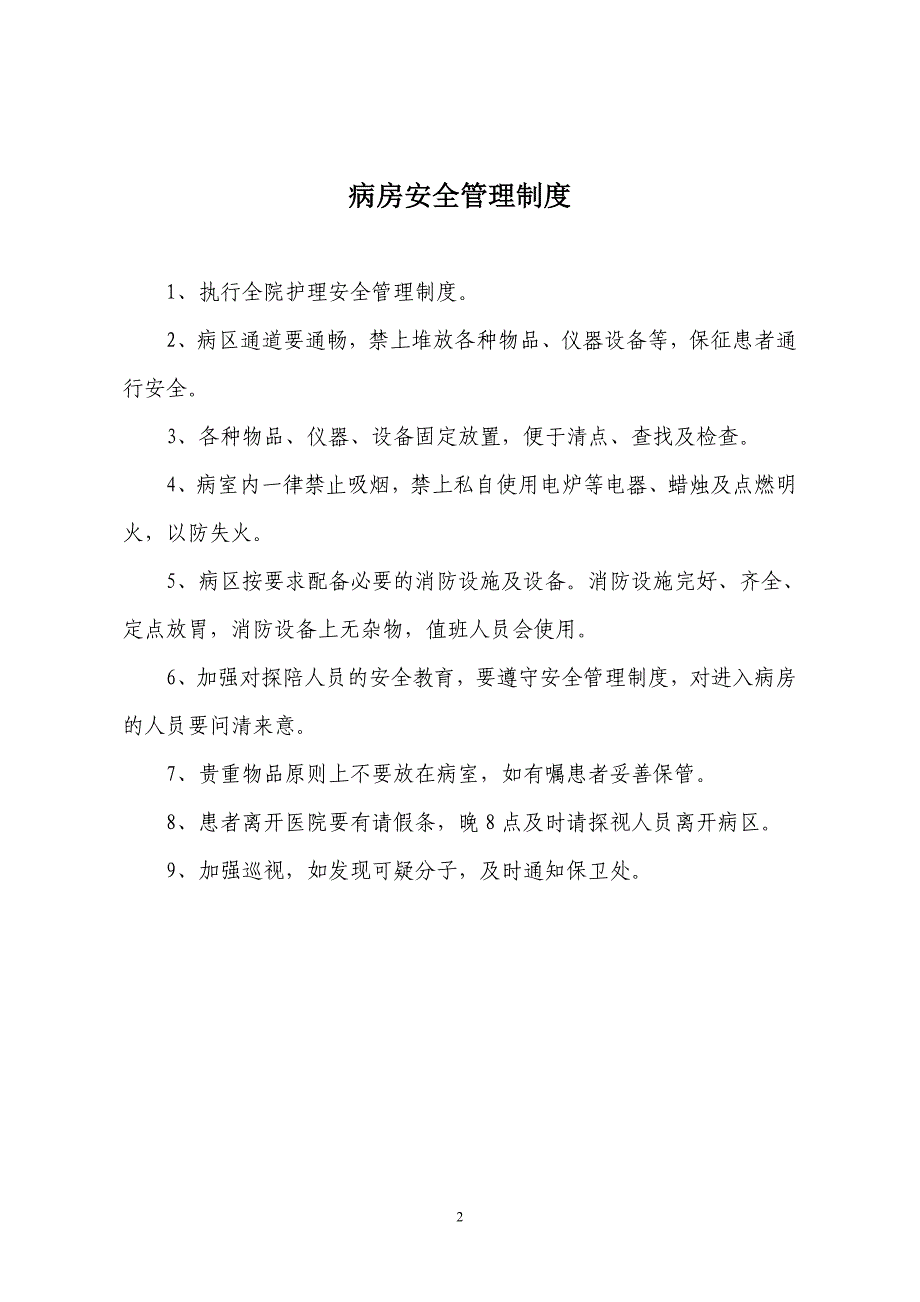 病房安全管理制度
1、执行全院护理安全管理制度。
2、病区通道要通畅，禁上堆放各种物品、仪器设备等，保征患者通
行安全。
3、各种物品、仪器、设备固定放置，便于清点、查找及检查。
4、病室内一律禁止吸烟，禁上私自使用电炉等电器、蜡烛及点燃明
火，以防失火。
5、病区按要求配备必要的消防设施及设备。消防设施完好、齐全、
定点放胃，消防设备上无杂物，值班人员会使用。
6、加强对探陪人员的安全教育，要遵守安全管理制度，对进入病房
的人员要问清来意。
7、贵重物品原则上不要放在病室，如有嘱患者妥善保管。
8、患者离开医院要有请假条，晚 8 点及时请探视人员离开病区。
9、加强巡视，如发现可疑分子，及时通知保卫处。
2